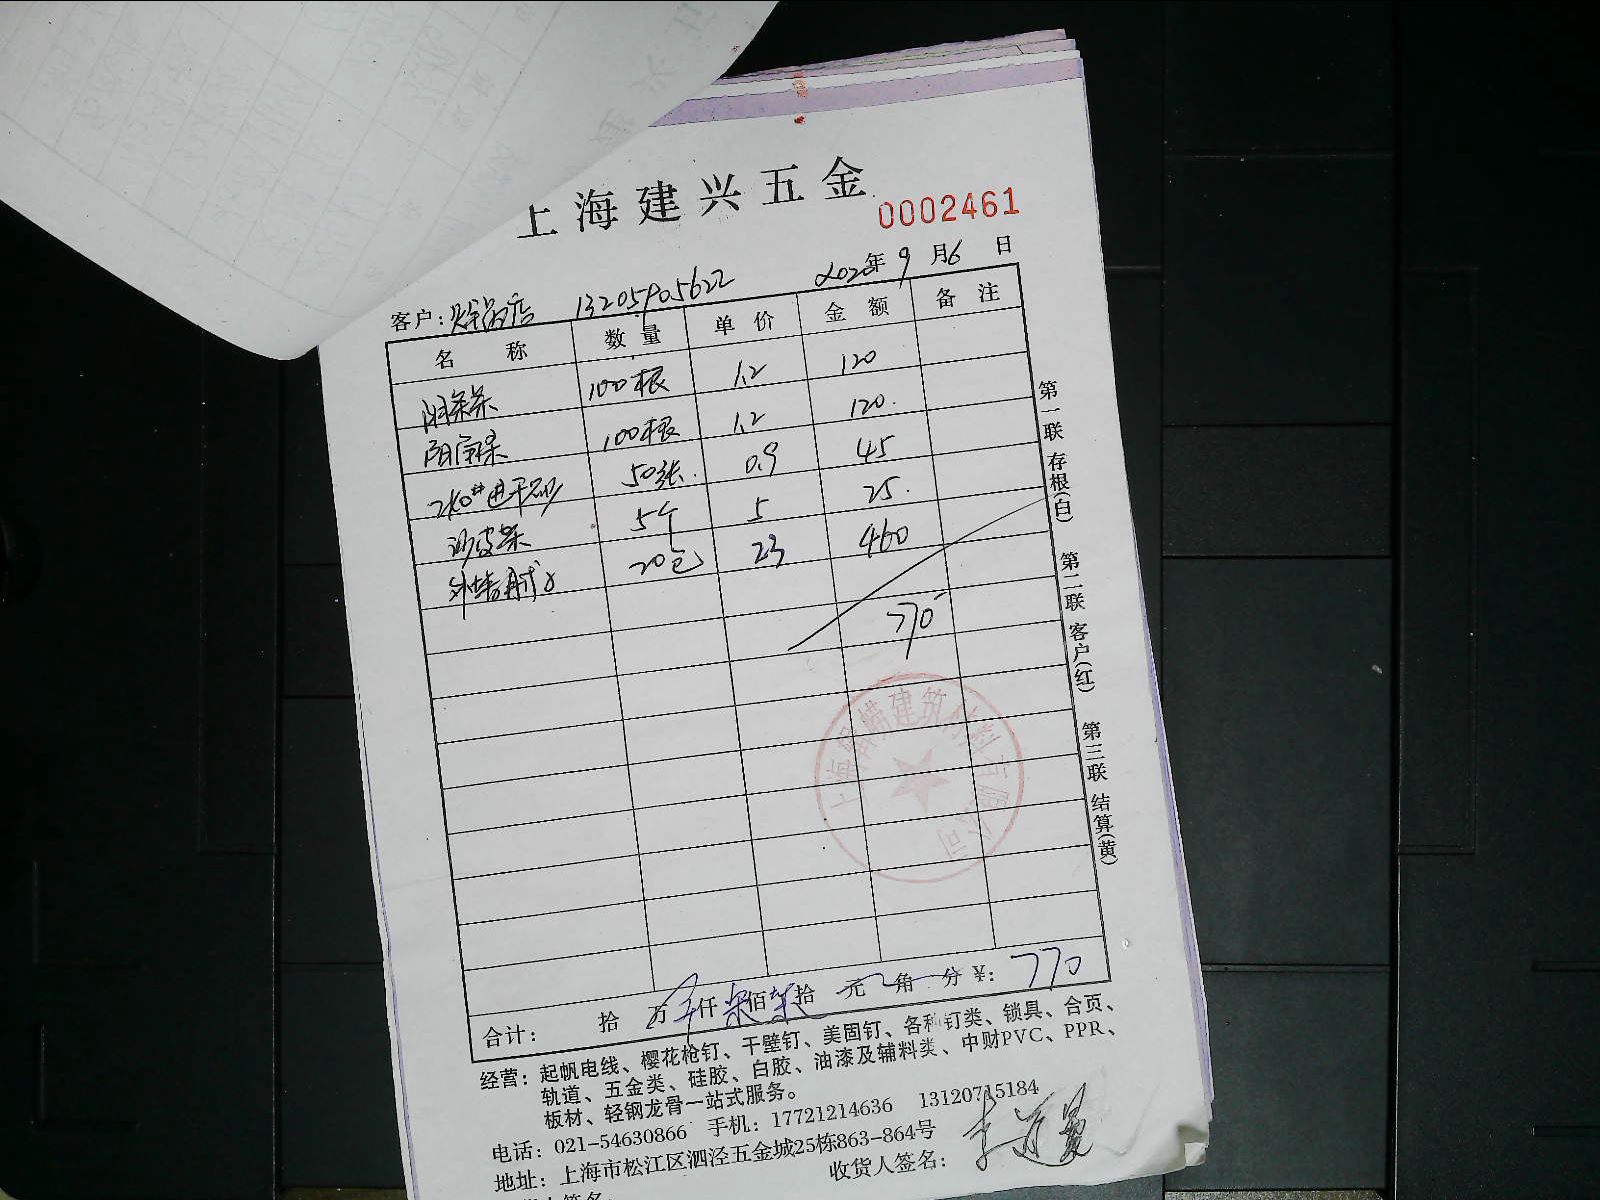 上海建兴五金
0002461
2020年9月6日
客户: 13205905622
名称 数量 单价 金额 备注
100根 1.2 120
100根 1.2 120
240# 50张 0.9 45
5个 5 25
20包 23 460
770
上海 建筑材料有限公司
第一联 存根(白) 第二联 客户(红) 第三联 结算(黄)
合计: 拾 万 仟 柒佰 柒拾 元 角 分 ¥: 770
经营: 起帆电线、樱花枪钉、干壁钉、美固钉、各种钉类、锁具、合页、
轨道、五金类、硅胶、白胶、油漆及辅料类、中财PVC、PPR、
板材、轻钢龙骨一站式服务。
电话: 021-54630866 手机: 17721214636 13120715184
地址: 上海市松江区泗泾五金城25栋863-864号
收货人签名: